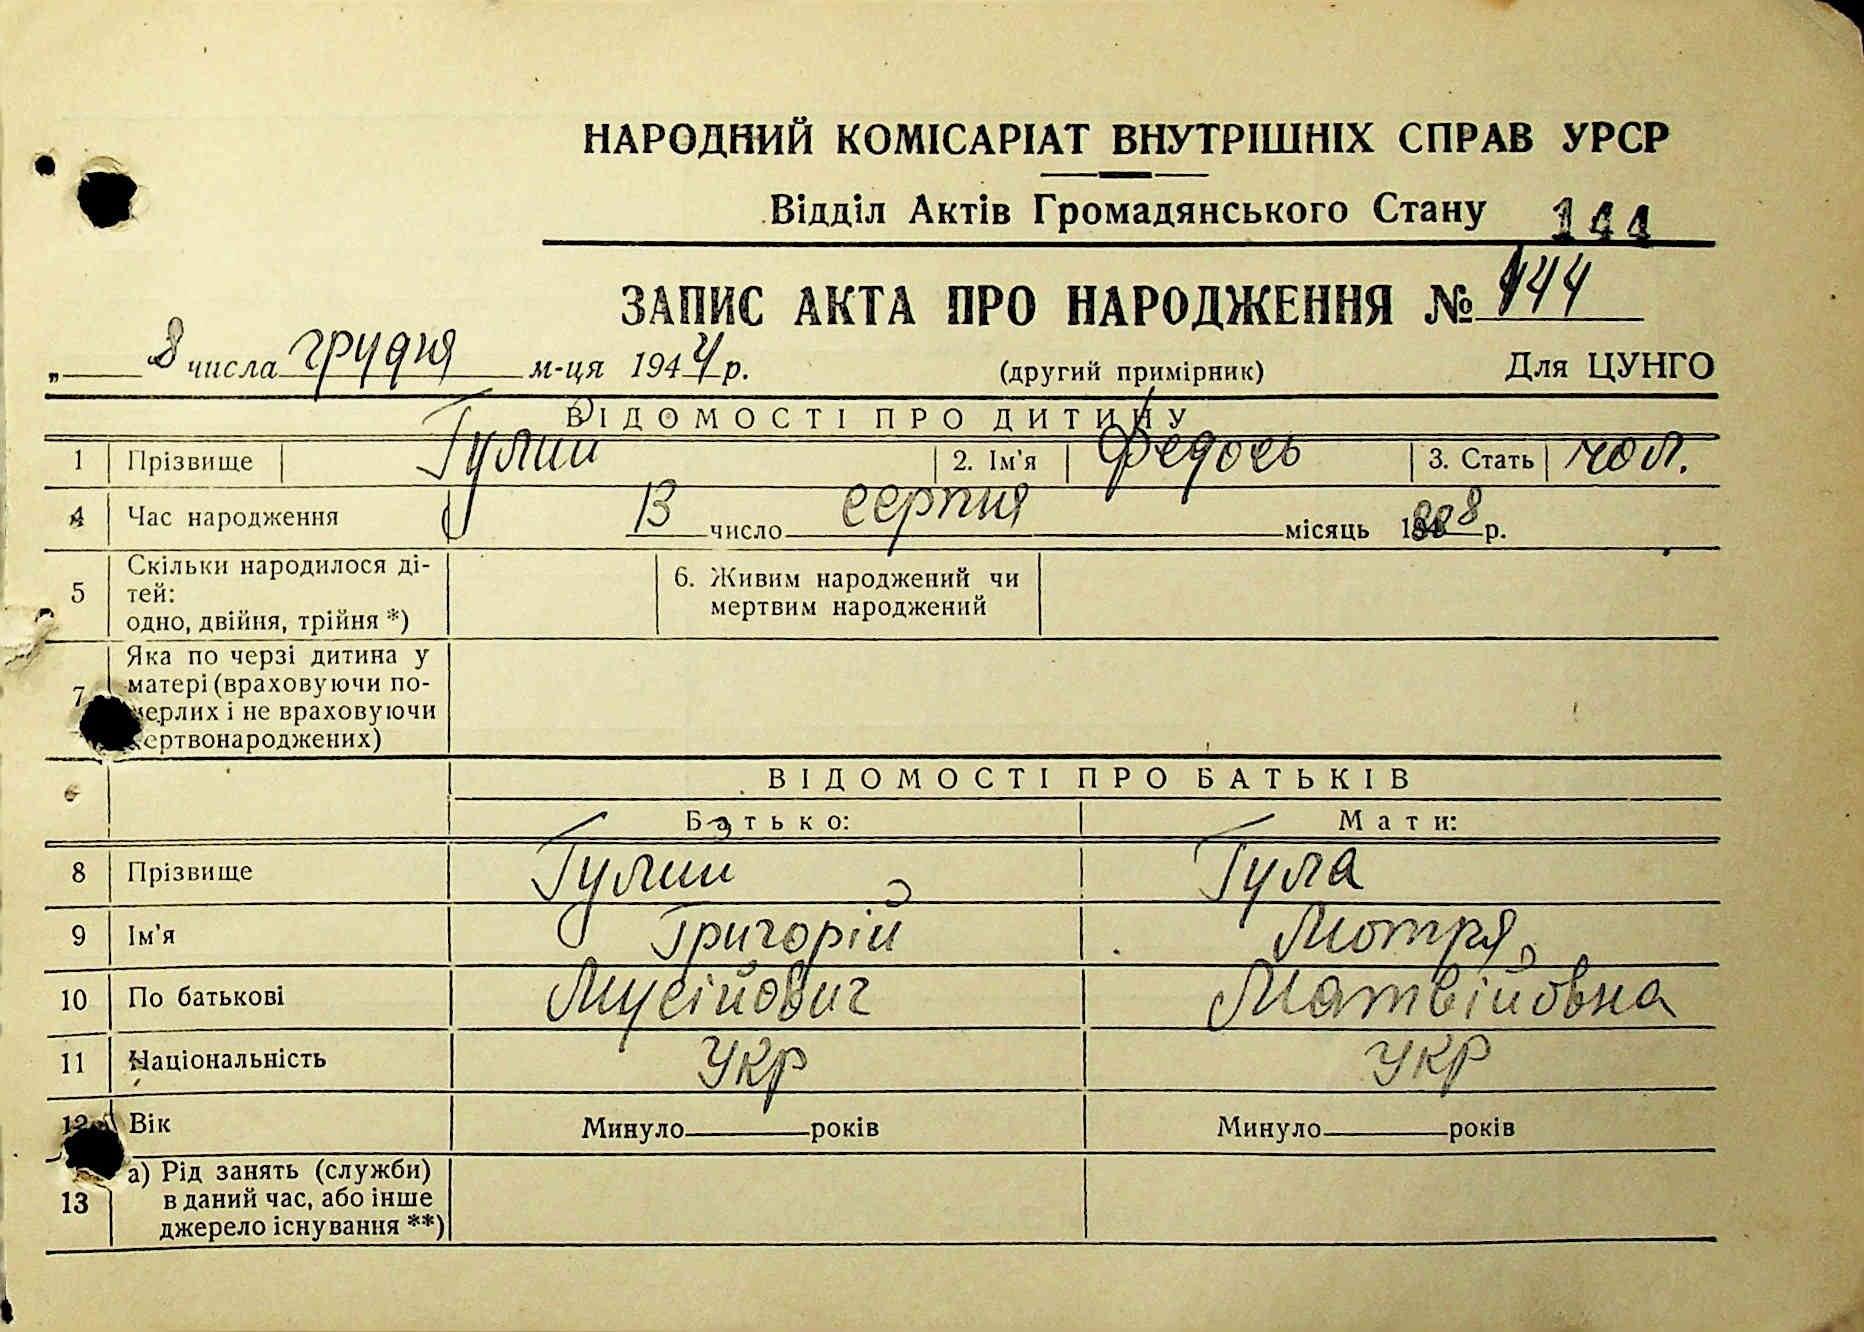 НАРОДНИЙ КОМІСАРІАТ ВНУТРІШНІХ СПРАВ УРСР
Відділ Актів Громадянського Стану 144
ЗАПИС АКТА ПРО НАРОДЖЕННЯ № 144
„ 8 числа грудня м-ця 1944 р. (другий примірник) Для ЦУНГО
ВІДОМОСТІ ПРО ДИТИНУ
1 Прізвище Гулий 2. Ім'я Федось 3. Стать чол.
4 Час народження 13 число серпня місяць р.
5 Скільки народилося ді-
тей:
одно, двійня, трійня *)
6. Живим народжений чи
мертвим народжений
7 Яка по черзі дитина у
матері (враховуючи по-
мерлих і не враховуючи
мертвонароджених)
ВІДОМОСТІ ПРО БАТЬКІВ
Батько: Мати:
8 Прізвище Гулий Гула
9 Ім'я Григорій Мотря
10 По батькові Мусійович Матвійовна
11 Національність Укр Укр
12 Вік Минуло років Минуло років
13 а) Рід занять (служби)
в даний час, або інше
джерело існування **)